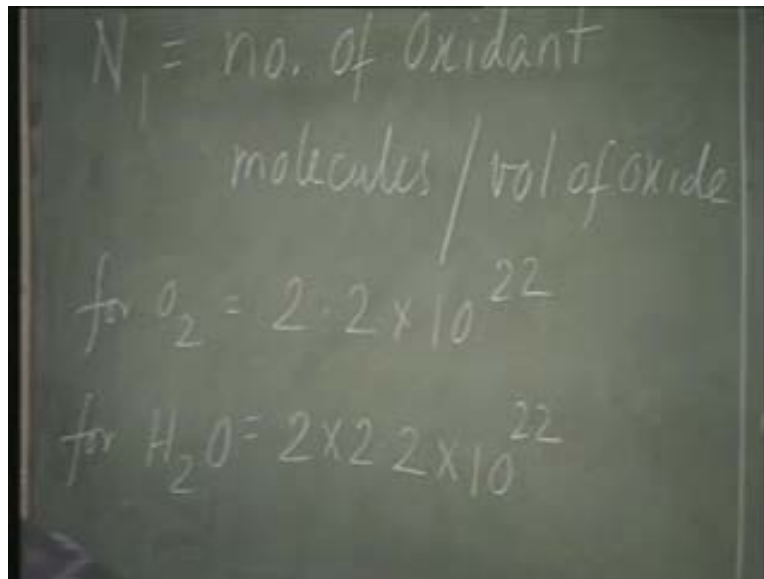 N₁ = no. of Oxidant
molecules / vol of oxide
for O₂ = 2.2 × 10²²
for H₂O = 2×2.2×10²²